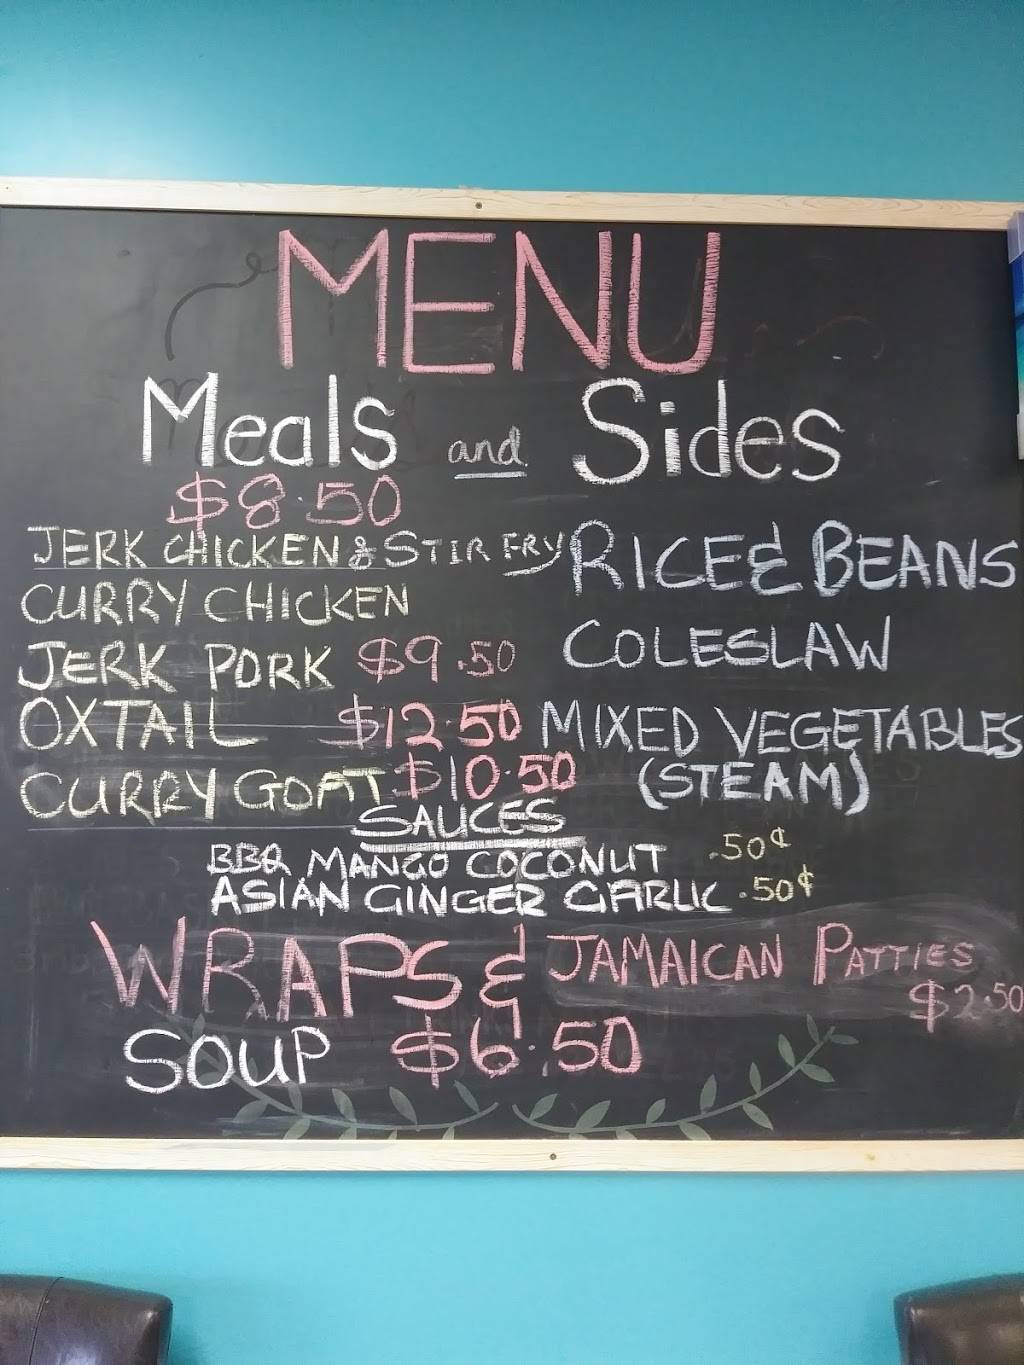 MENU
Meals and Sides
$8.50
JERK CHICKEN & STIR FRY
CURRY CHICKEN
JERK PORK $9.50
OXTAIL $12.50
CURRY GOAT $10.50
RICE & BEANS
COLESLAW
MIXED VEGETABLES
(STEAM)
SAUCES
BBQ MANGO COCONUT .50¢
ASIAN GINGER GARLIC .50¢
WRAPS & JAMAICAN PATTIES
$2.50
SOUP $6.50